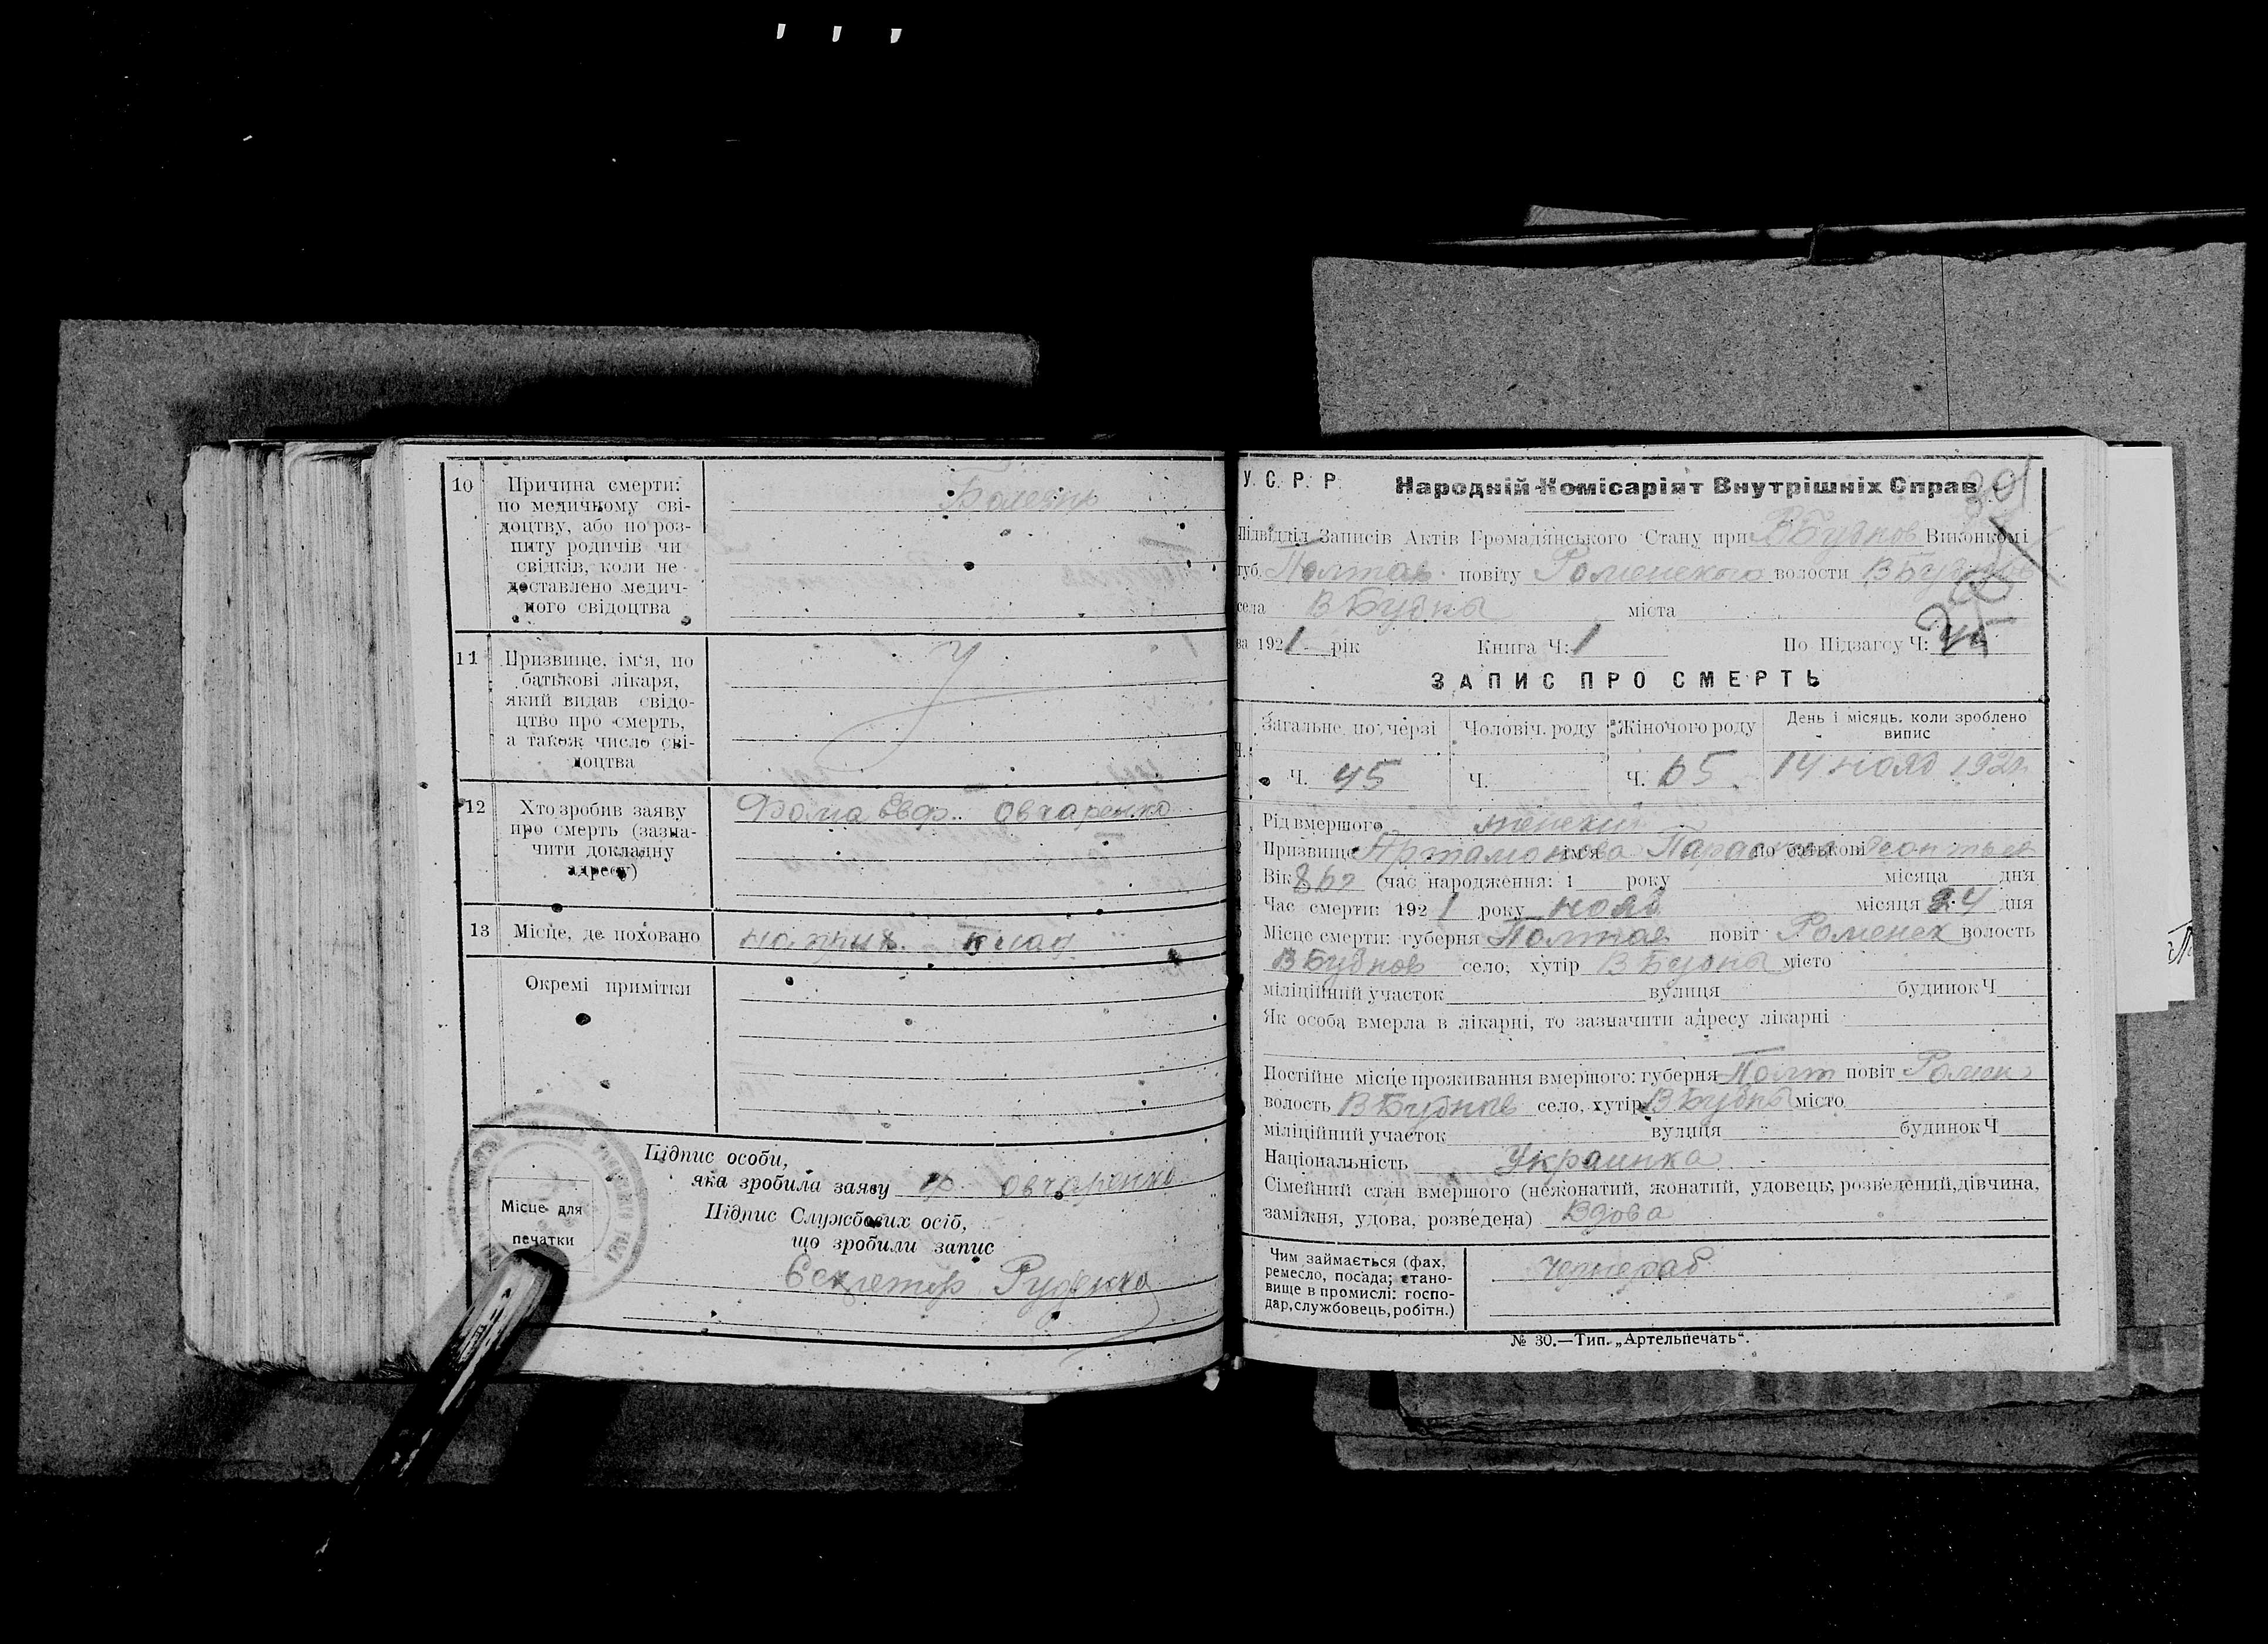 10 Причина смерти: по медичному сві-
доцтву, або по роз-
питу родичів чи
свідків, коли не
доставлено медич-
ного свідоцтва
Болезнь
11 Призвище, ім'я, по
батькові лікаря,
який видав свідо-
цтво про смерть,
а також число сві-
доцтва
12 Хто зробив заяву
про смерть (зазна-
чити докладну
адресу)
Фома Евф. Овчаренко
13 Місце, де поховано
на прих. клад
Окремі примітки
Підпис особи,
яка зробила заяву Ф Овчаренко
Підпис Службових осіб,
що зробили запис
Секретар Руденко
Місце для
печатки
У. С. Р. Р. Народній Комісаріят Внутрішніх Справ
Підвідділ Записів Актів Громадянського Стану при В Будков Виконкомі
губ. Полтав повіту Роменского волости В Будков
села В Бубны міста
за 1921 рік Книга Ч: 1 По Підзагсу Ч:
ЗАПИС ПРО СМЕРТЬ
Загальне по черзі Чоловіч. роду Жіночого роду День і місяць, коли зроблено
випис
Ч. 45 Ч. Ч. 65 14 нояб 1921
Рід вмершого женский
Призвище Артамонова ім'я Параскева по батькові Леонтьев
Вік (час народження: 1 року місяца дня
Час смерти: 1921 року нояб місяця 24 дня
Місце смерти: губерня Полтав повіт Роменск волость
В Бубнов село, хутір В Бубны місто
міліційний участок вулиця будинок Ч
Як особа вмерла в лікарні, то зазначити адресу лікарні
Постійне місце проживання вмершого: губерня Полт повіт Ромен
волость В Бубнов село, хутір В Бубны місто
міліційний участок вулиця будинок Ч
Національність Украинка
Сімейний стан вмершого (нежонатий, жонатий, удовець, розведений, дівчина,
заміжня, удова, розведена) Вдова
Чим займається (фах,
ремесло, посада; стано-
вище в промислі: госпо-
дар, службовець, робітн.)
Чернораб
№ 30.—Тип. „Артельпечать“.